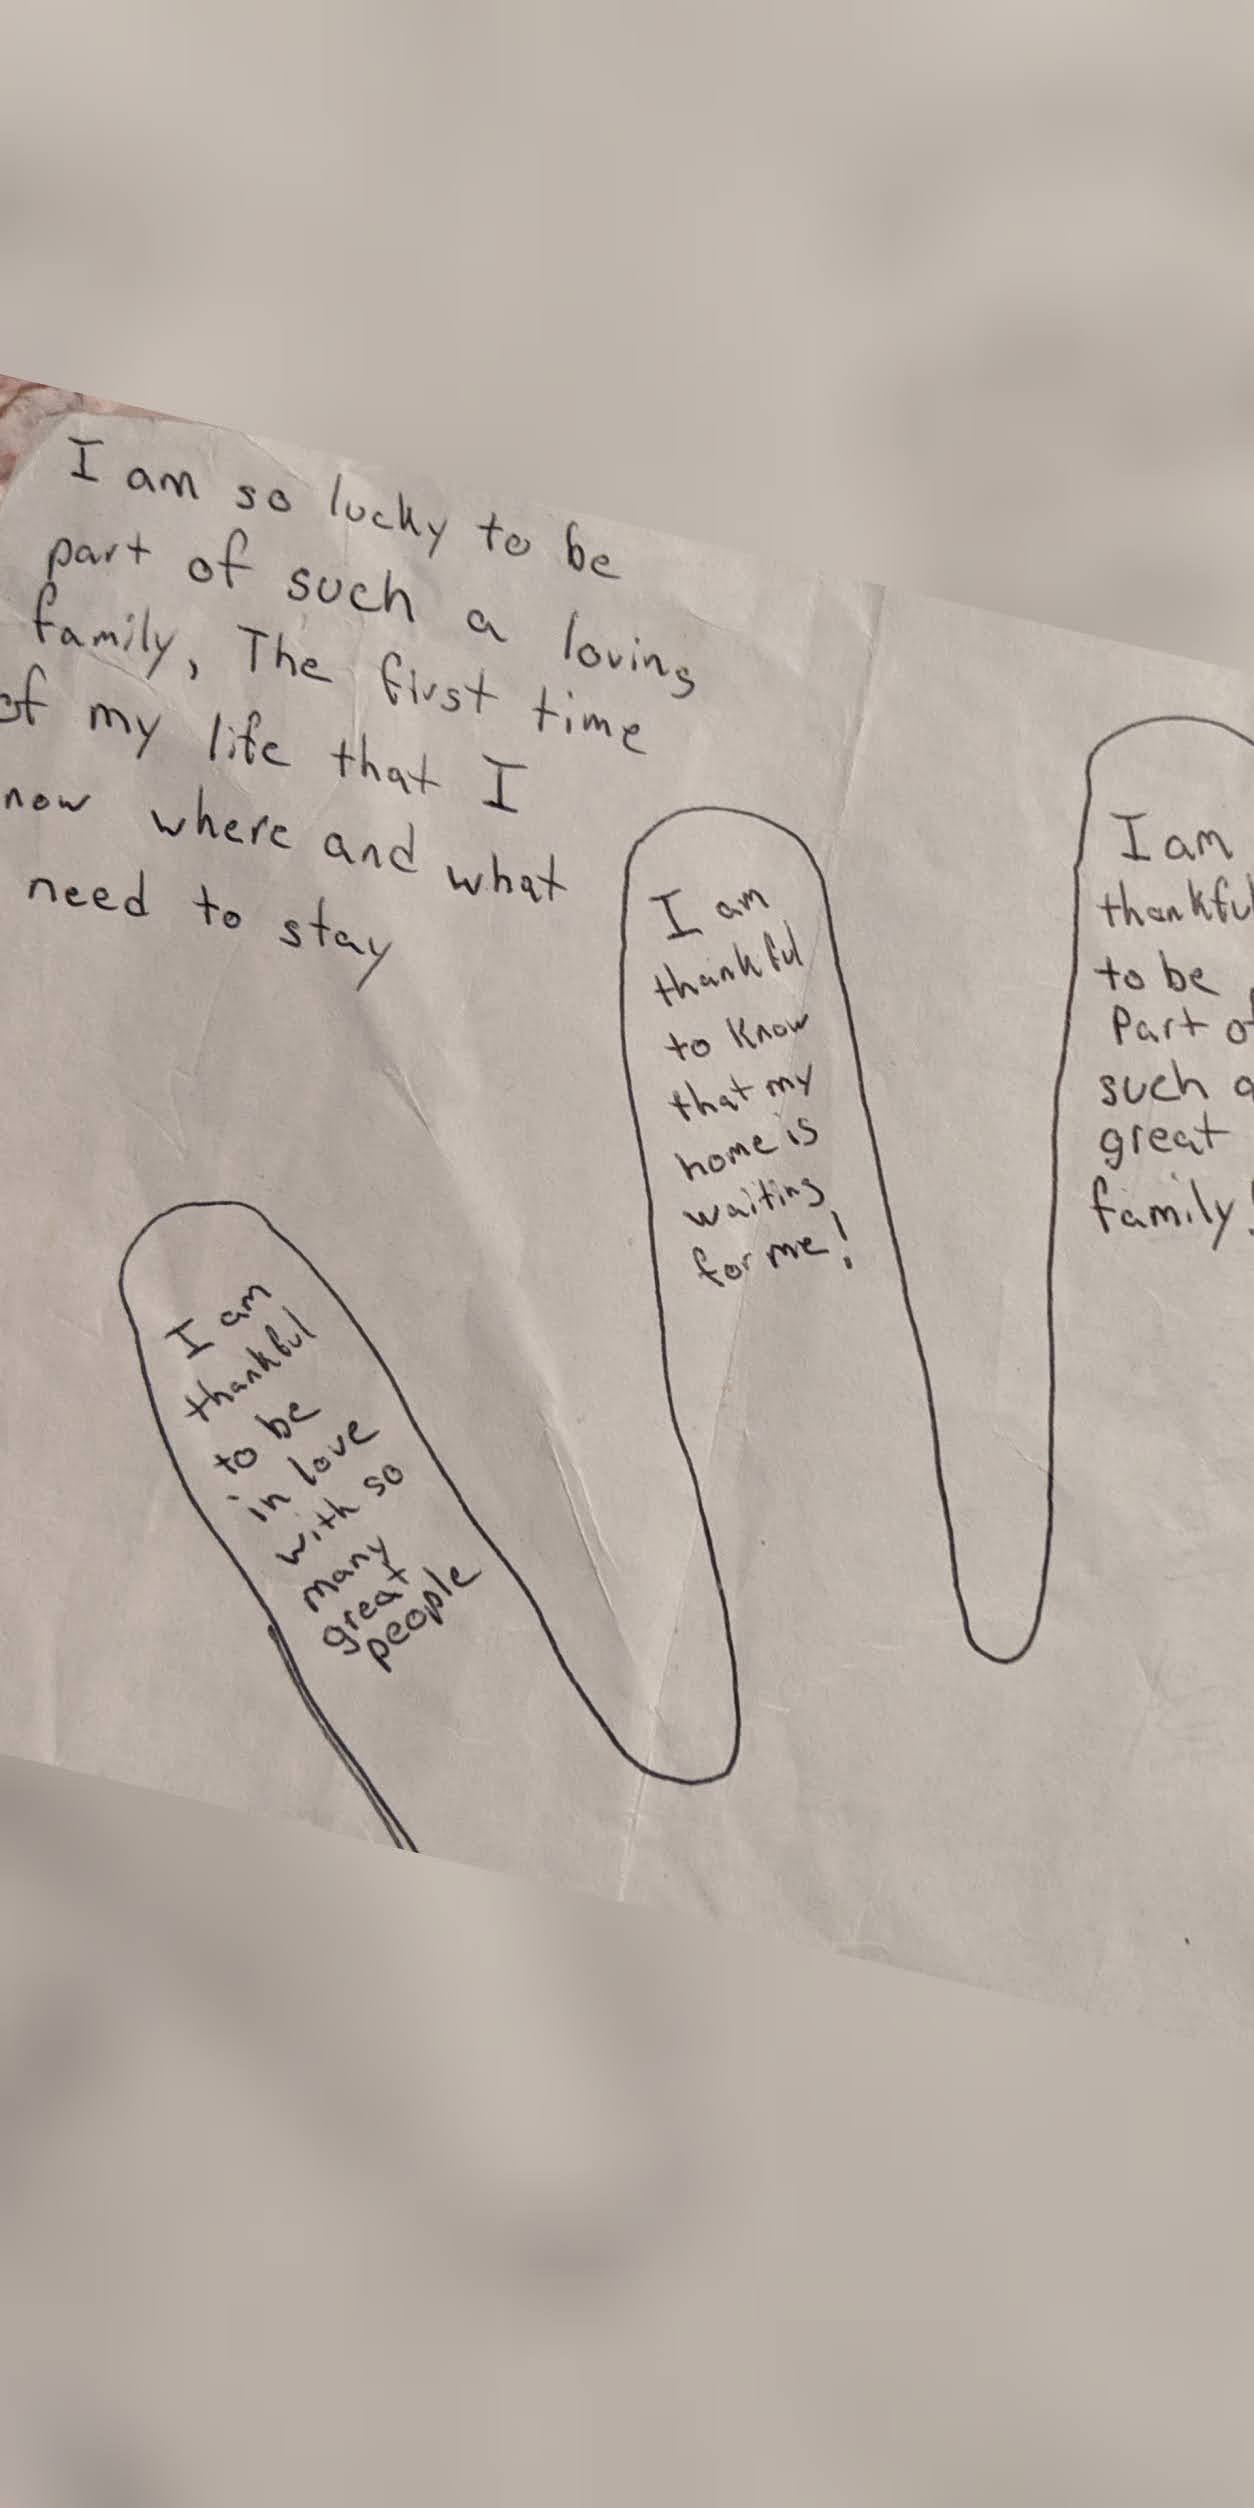 I am so lucky to be
part of such a loving
family, The first time
of my life that I
now where and what
need to stay
I am
thankful
to be
in love
with so
many
great
people
I am
thankful
to know
that my
home is
waiting
for me!
I am
thankful
to be
Part of
such a
great
family!